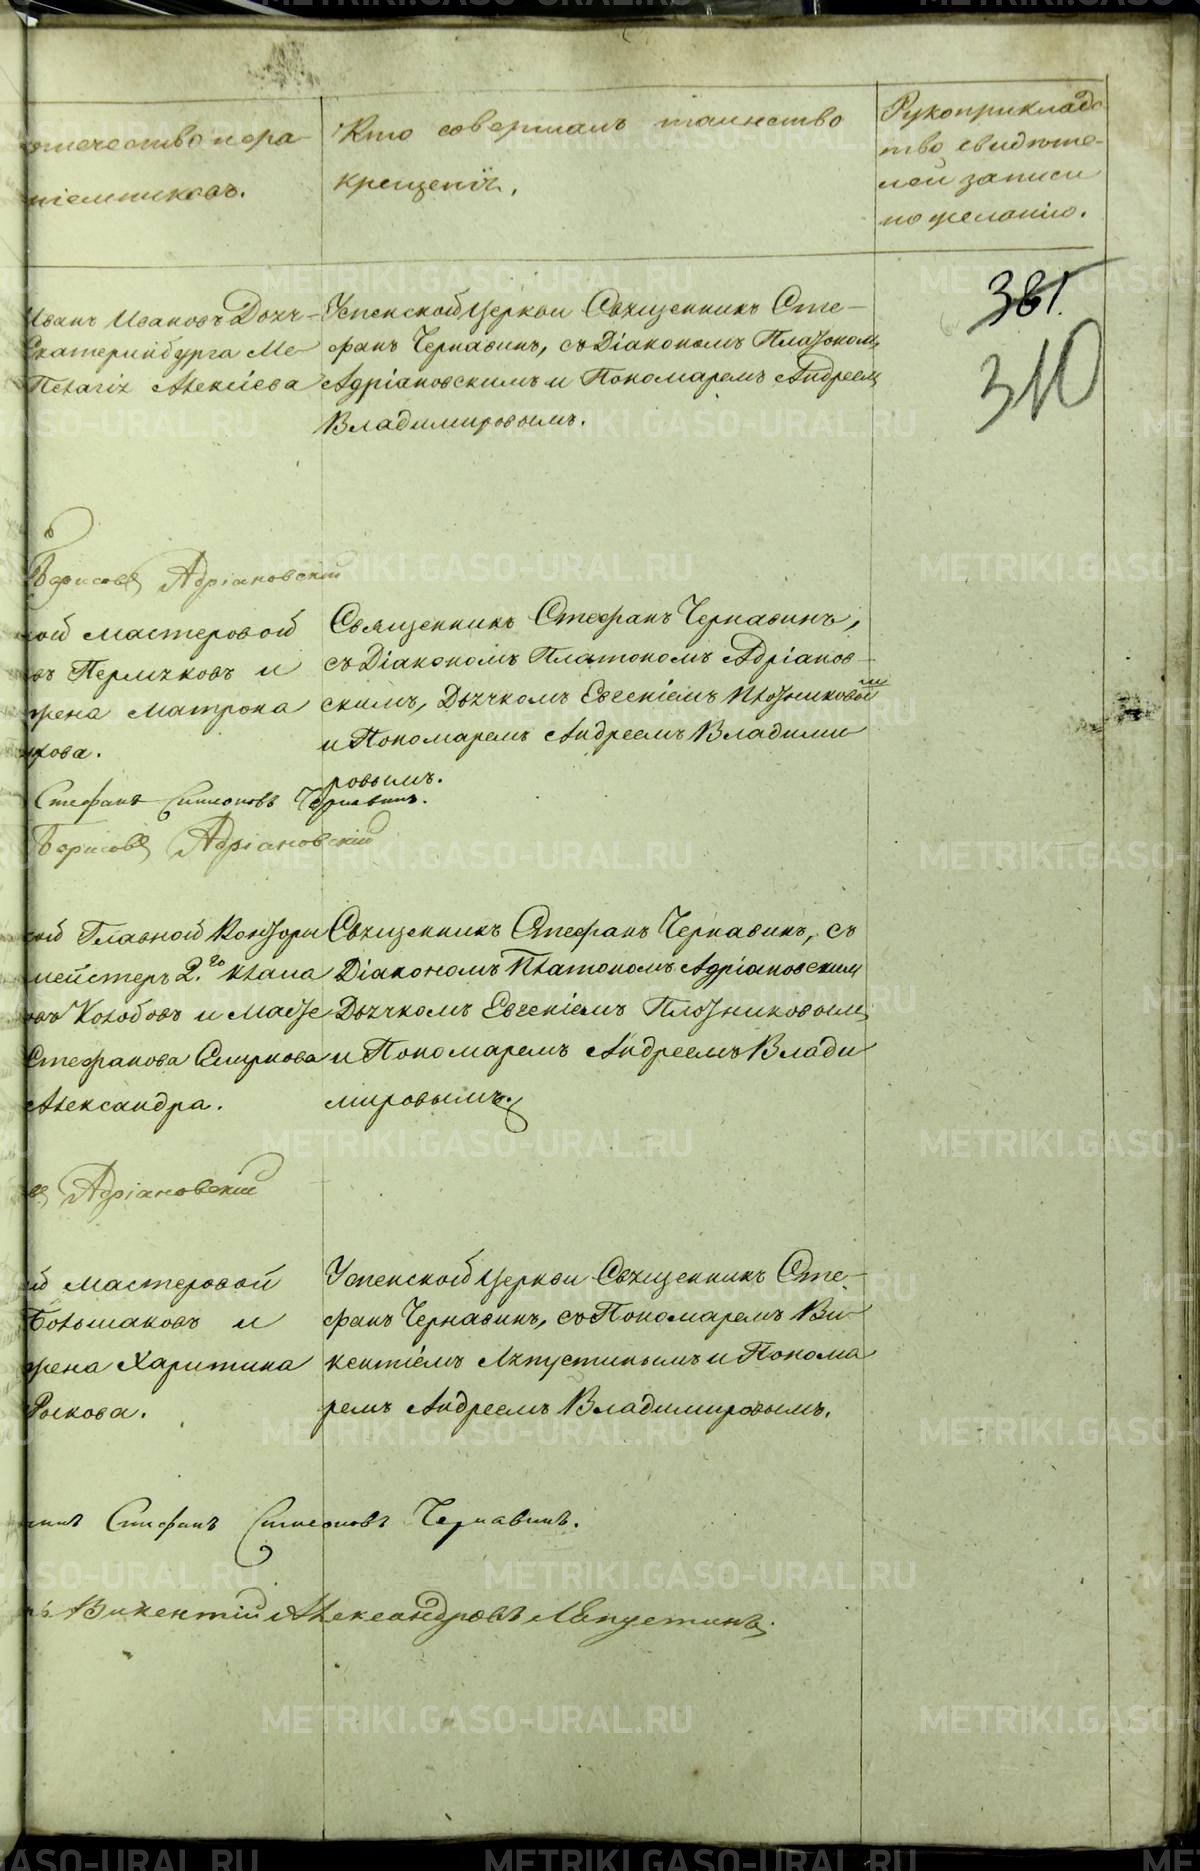 отечество и фа-
міемниковъ.
Кто совершалъ таинство
крещенія.
Рукоприкладс
тво свидѣте-
лей записи
по желанію.
381.
310
Иванъ Ивановъ Дохч-
Екатеринбурга Ме-
Пелагія Алексіева
Успенской церкви Священникъ Сте-
фанъ Чернавинъ, съ Діакономъ Платоном
Адріановскимъ и Пономаремъ Андреем
Владимировымъ.
Борисовъ Адріановскій
кой мастеровой
въ Пермяковъ и
жена Матрона
кова.
Священникъ Стефанъ Чернавинъ,
съ Діакономъ Платономъ Адріанов-
скимъ, Дьячкомъ Евгеніемъ Плотниковым
и Пономаремъ Андреемъ Владими
ровымъ.
Стефанъ Симеоновъ Чернавинъ.
Борисовъ Адріановскій
ой Главной Конторы
мейстеръ 2.го класа
овъ Колобовъ и
Стефанова Смирнова
Александра.
Священникъ Стефанъ Чернавинъ, съ
Діакономъ Платономъ Адріановским
Дьячкомъ Евгеніемъ Плотниковым
и Пономаремъ Андреемъ Влади
мировымъ.
въ Адріановскій
й мастеровой
Большаковъ и
жена Харитина
Рыкова.
Успенской церкви Священникъ Сте-
фанъ Чернавинъ, съ Пономаремъ Ви
кентіемъ Ляпустинымъ и Понома
ремъ Андреемъ Владимировымъ.
никъ Стефанъ Симеоновъ Чернавинъ.
ь Викентій Александровъ Ляпустинъ.
METRIKI.GASO-URAL.RU